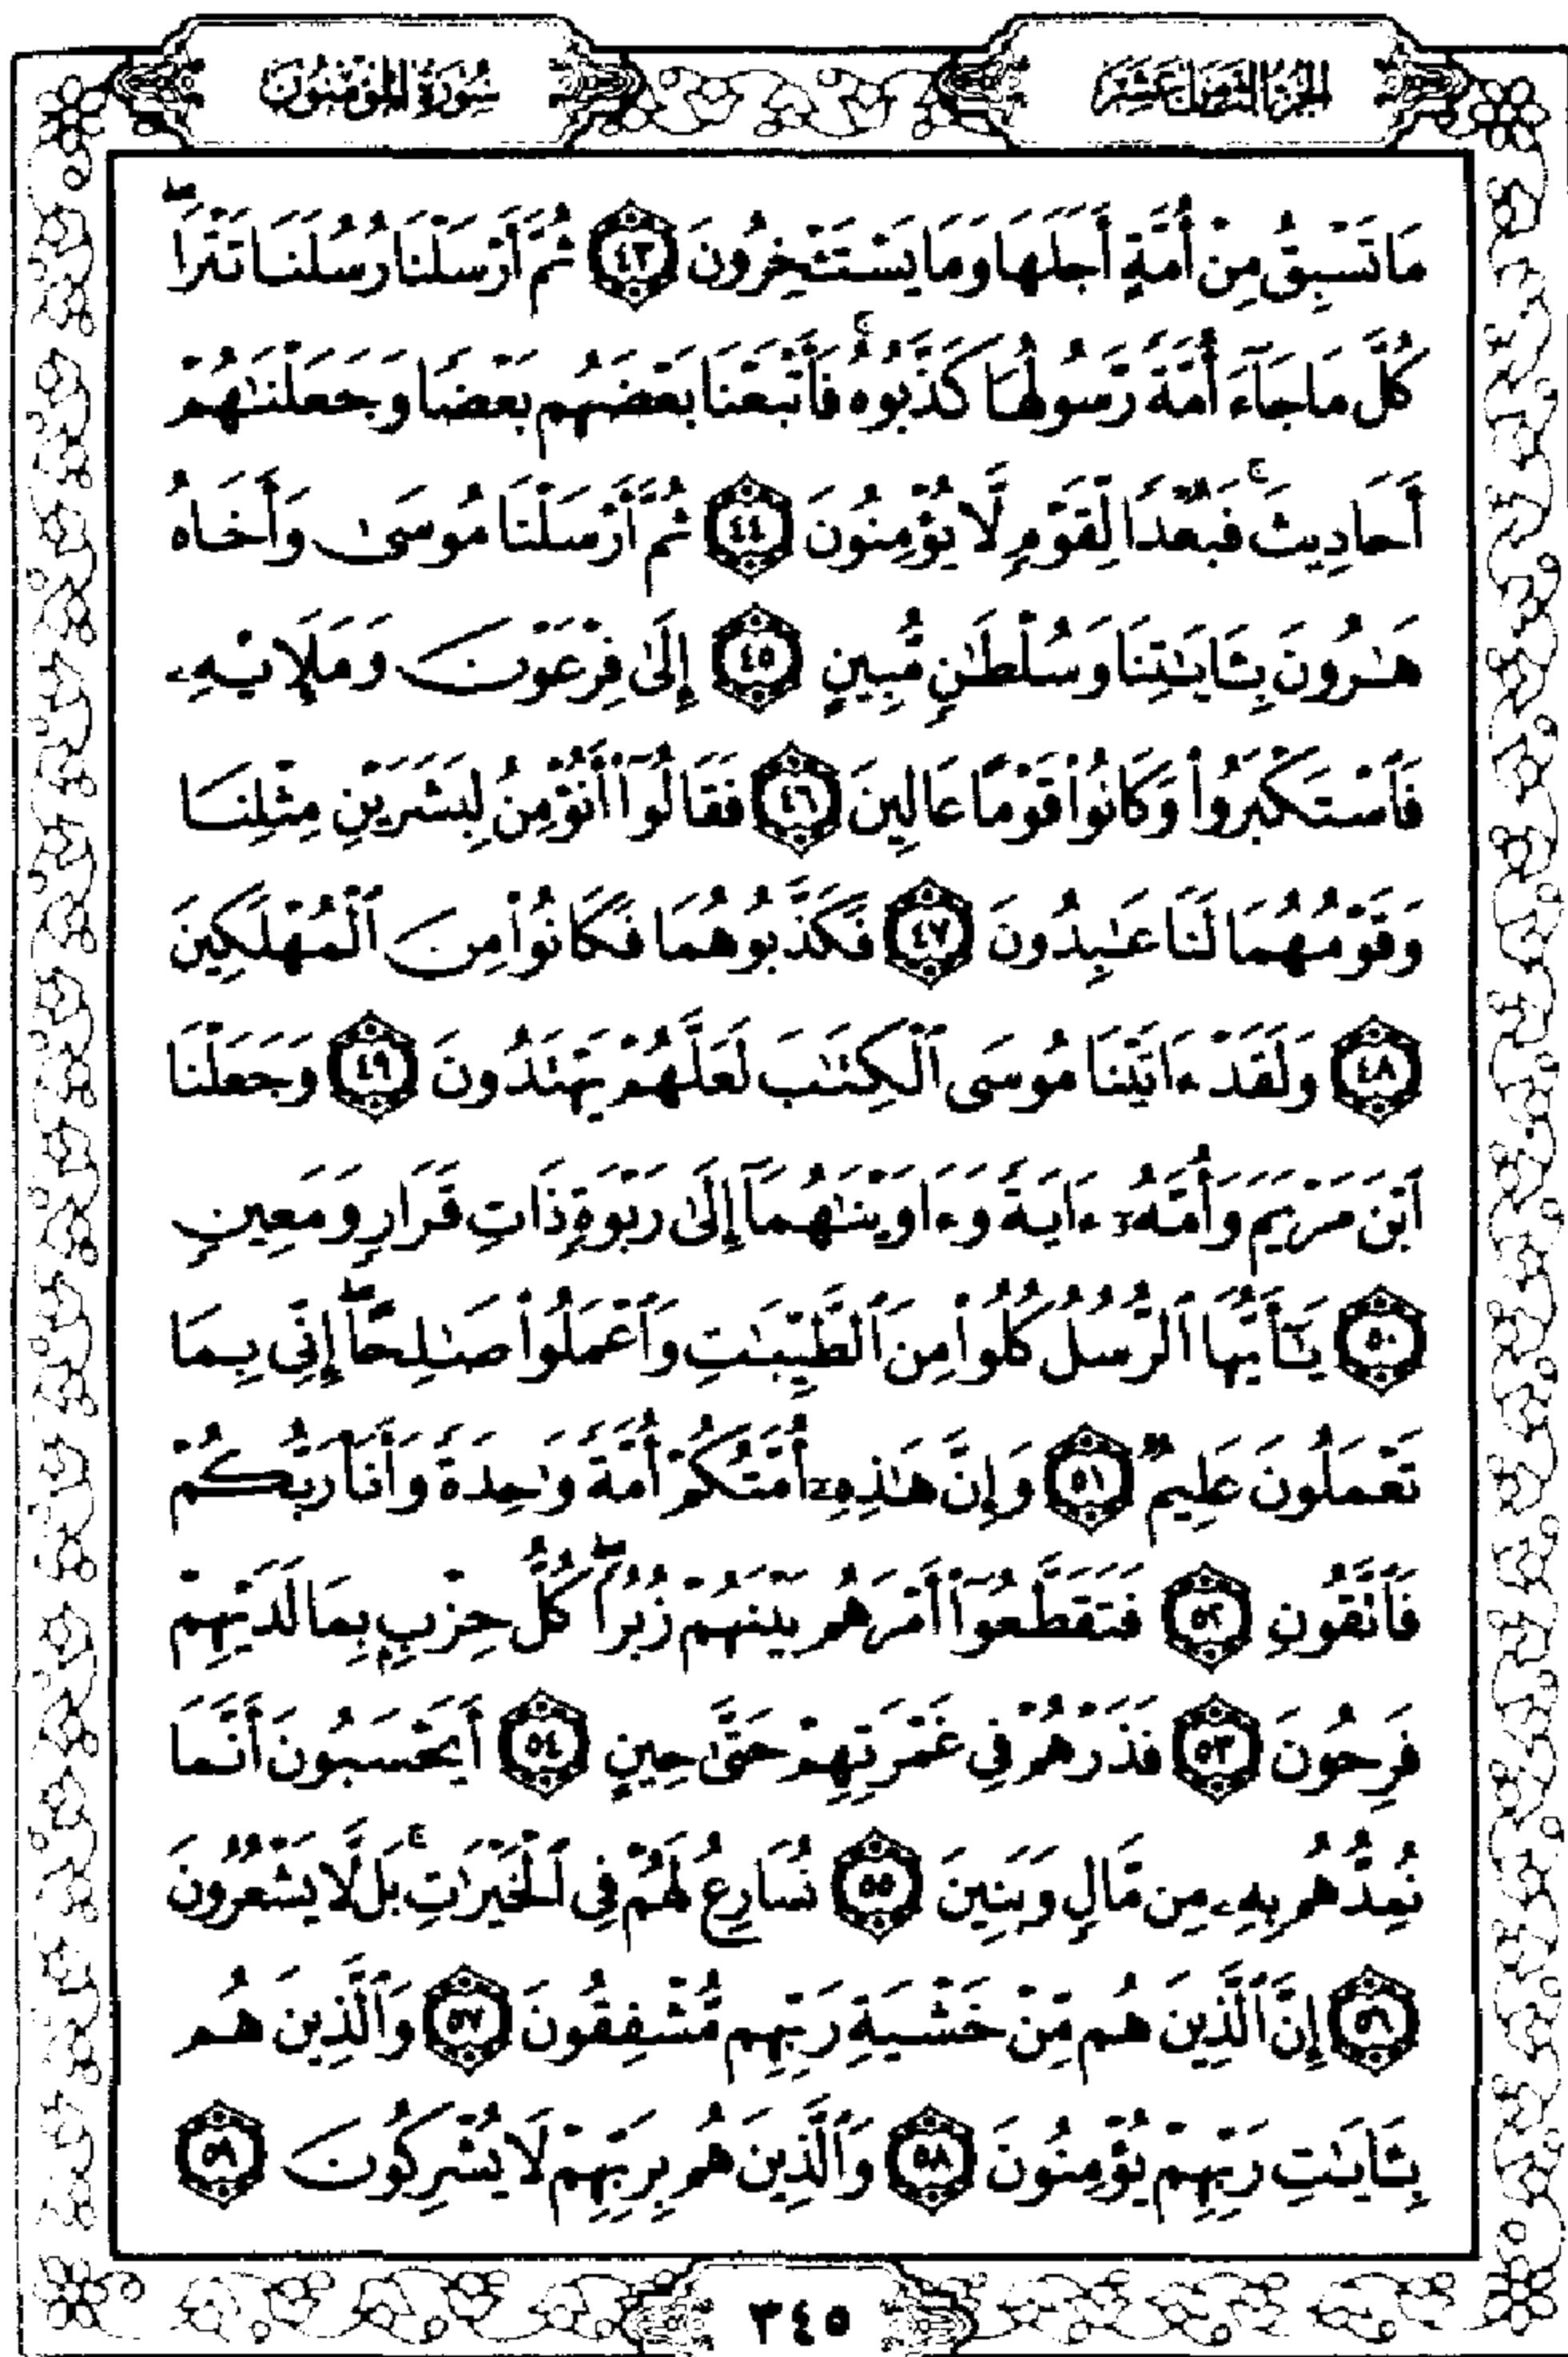 الجزء الثامن عشر
سورة المؤمنون
مَا تَسْبِقُ مِنْ أُمَّةٍ أَجَلَهَا وَمَا يَسْتَـْٔخِرُونَ ٤٣ ثُمَّ أَرْسَلْنَا رُسُلَنَا تَتْرَاۖ
كُلَّ مَا جَآءَ أُمَّةً رَّسُولُهَا كَذَّبُوهُۚ فَأَتْبَعْنَا بَعْضَهُم بَعْضًا وَجَعَلْنَٰهُمْ
أَحَادِيثَۚ فَبُعْدًا لِّقَوْمٍ لَّا يُؤْمِنُونَ ٤٤ ثُمَّ أَرْسَلْنَا مُوسَىٰ وَأَخَاهُ
هَٰرُونَ بِـَٔايَٰتِنَا وَسُلْطَٰنٍ مُّبِينٍ ٤٥ إِلَىٰ فِرْعَوْنَ وَمَلَإِي۟هِۦ
فَٱسْتَكْبَرُوا۟ وَكَانُوا۟ قَوْمًا عَالِينَ ٤٦ فَقَالُوٓا۟ أَنُؤْمِنُ لِبَشَرَيْنِ مِثْلِنَا
وَقَوْمُهُمَا لَنَا عَٰبِدُونَ ٤٧ فَكَذَّبُوهُمَا فَكَانُوا۟ مِنَ ٱلْمُهْلَكِينَ
٤٨ وَلَقَدْ ءَاتَيْنَا مُوسَى ٱلْكِتَٰبَ لَعَلَّهُمْ يَهْتَدُونَ ٤٩ وَجَعَلْنَا
ٱبْنَ مَرْيَمَ وَأُمَّهُۥٓ ءَايَةً وَءَاوَيْنَٰهُمَآ إِلَىٰ رَبْوَةٍ ذَاتِ قَرَارٍ وَمَعِينٍ
٥٠ يَٰٓأَيُّهَا ٱلرُّسُلُ كُلُوا۟ مِنَ ٱلطَّيِّبَٰتِ وَٱعْمَلُوا۟ صَٰلِحًاۖ إِنِّي بِمَا
تَعْمَلُونَ عَلِيمٌ ٥١ وَإِنَّ هَٰذِهِۦٓ أُمَّتُكُمْ أُمَّةً وَٰحِدَةً وَأَنَا۠ رَبُّكُمْ
فَٱتَّقُونِ ٥٢ فَتَقَطَّعُوٓا۟ أَمْرَهُم بَيْنَهُمْ زُبُرًاۖ كُلُّ حِزْبٍۭ بِمَا لَدَيْهِمْ
فَرِحُونَ ٥٣ فَذَرْهُمْ فِي غَمْرَتِهِمْ حَتَّىٰ حِينٍ ٥٤ أَيَحْسَبُونَ أَنَّمَا
نُمِدُّهُم بِهِۦ مِن مَّالٍ وَبَنِينَ ٥٥ نُسَارِعُ لَهُمْ فِي ٱلْخَيْرَٰتِۚ بَل لَّا يَشْعُرُونَ
٥٦ إِنَّ ٱلَّذِينَ هُم مِّنْ خَشْيَةِ رَبِّهِم مُّشْفِقُونَ ٥٧ وَٱلَّذِينَ هُم
بِـَٔايَٰتِ رَبِّهِمْ يُؤْمِنُونَ ٥٨ وَٱلَّذِينَ هُم بِرَبِّهِمْ لَا يُشْرِكُونَ ٥٩
٣٤٥